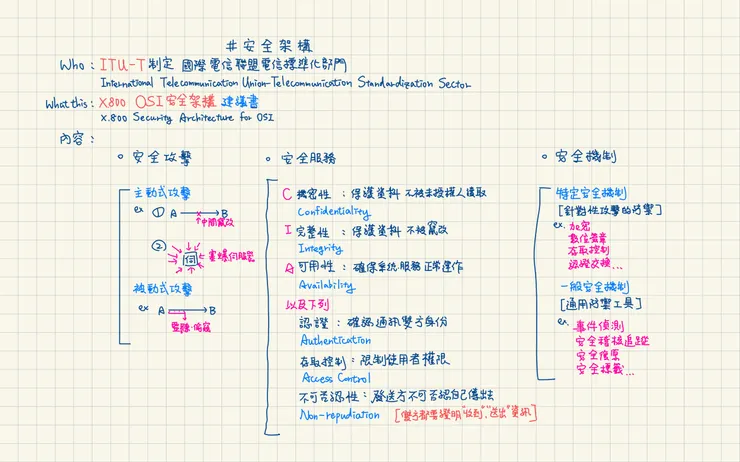 #安全架構
Who: ITU-T制定 國際電信聯盟電信標準化部門
International Telecommunication Union-Telecommunication Standardization Sector
What this: X.800 OSI安全架構 建議書
X.800 Security Architecture for OSI
內容:
安全攻擊
主動式攻擊
ex ① A B
中間竄改
②
伺
塞爆伺服器
被動式攻擊
ex A B
監聽、偷窺
安全服務
C 機密性：保護資料 不被未授權人讀取
Confidentiality
I 完整性：保護資料 不被竄改
Integrity
A 可用性：確保系統、服務正常運作
Availability
以及下列
認證：確認通訊雙方身份
Authentication
存取控制：限制使用者權限
Access Control
不可否認性：發送方不可否認自己傳出去
Non-repudiation [雙方都需證明"收到"、"送出"資訊]
安全機制
特定安全機制
[針對性攻擊的防禦]
ex. 加密
數位簽章
存取控制
認證交換...
一般安全機制
[通用防禦工具]
ex. 事件偵測
安全稽核追蹤
安全復原
安全標籤...